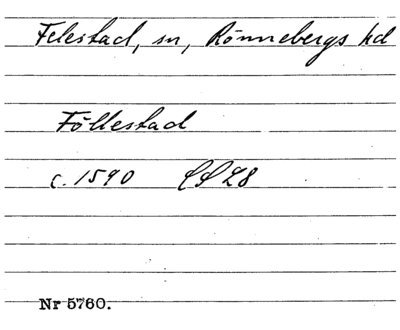 Felestad, sn, Rönnebergs hd
Föllestad
c. 1590 LSL8
Nr 5760.